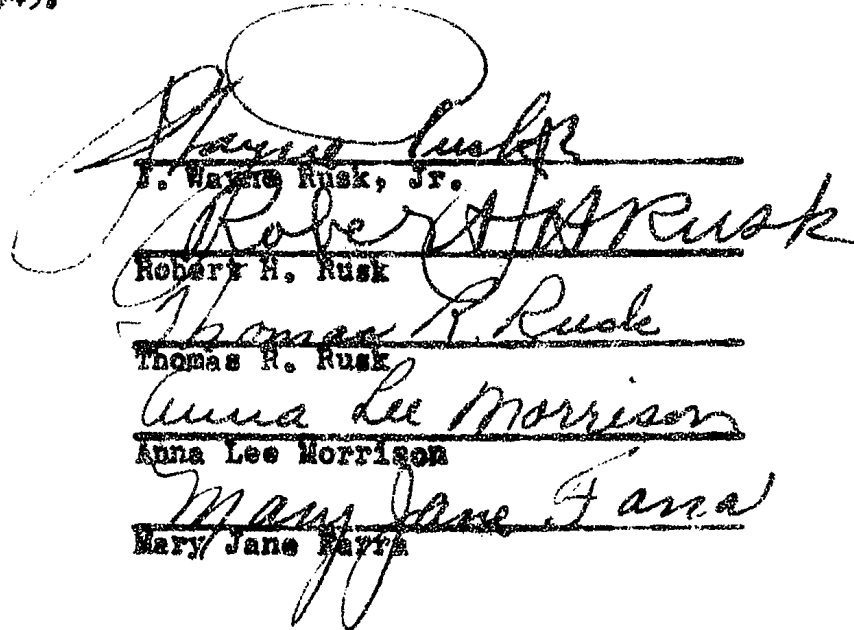 J Wayne Rusk Jr
J. Wayne Rusk, Jr.
Robert H Rusk
Robert H. Rusk
Thomas R. Rusk
Thomas R. Rusk
Anna Lee Morrison
Anna Lee Morrison
Mary Jane Farra
Mary Jane Farra